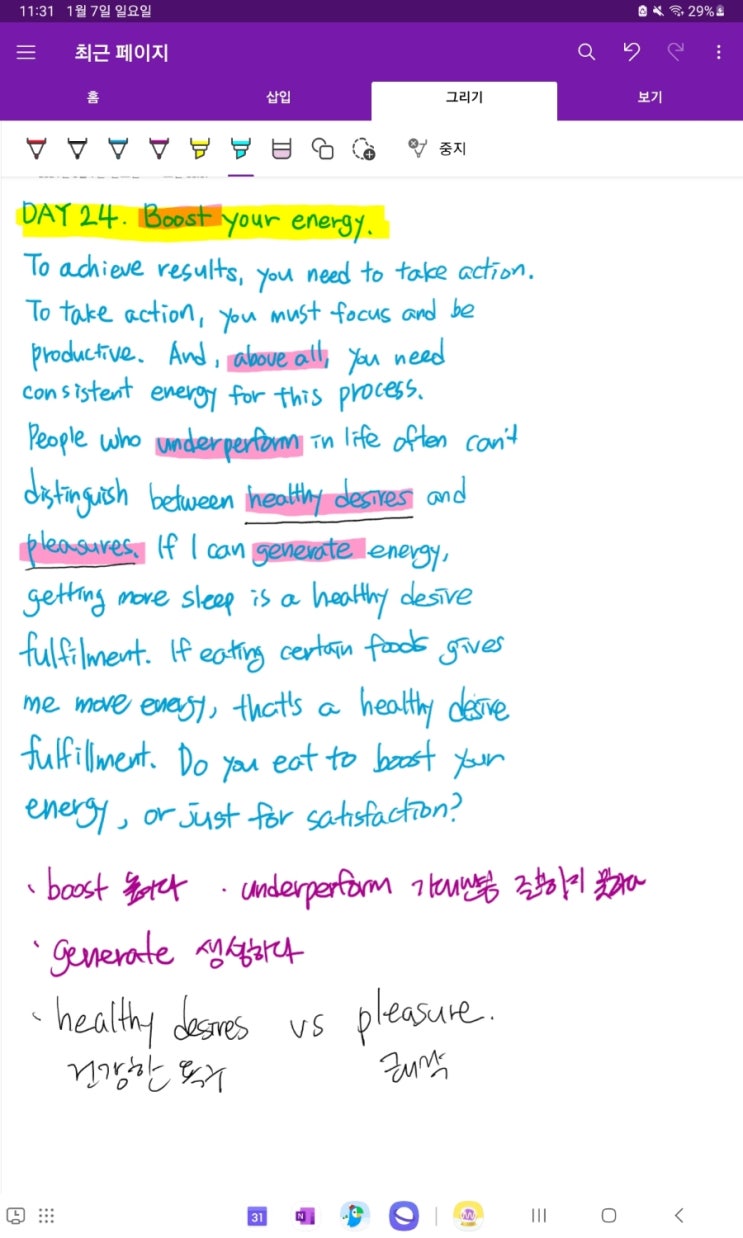 11:31 1월 7일 일요일 29%
최근 페이지
홈 삽입 그리기 보기
중지
DAY 24. Boost your energy.
To achieve results, you need to take action.
To take action, you must focus and be
productive. And, above all, you need
consistent energy for this process.
People who underperform in life often can't
distinguish between healthy desires and
pleasures. If I can generate energy,
getting more sleep is a healthy desire
fulfilment. If eating certain foods gives
me more energy, that's a healthy desire
fulfillment. Do you eat to boost your
energy, or just for satisfaction?
· boost 높이다 · underperform 기대만큼 하지 못하다
· generate 생성하다
· healthy desires vs pleasure.
건강한 욕구 쾌락
31 N